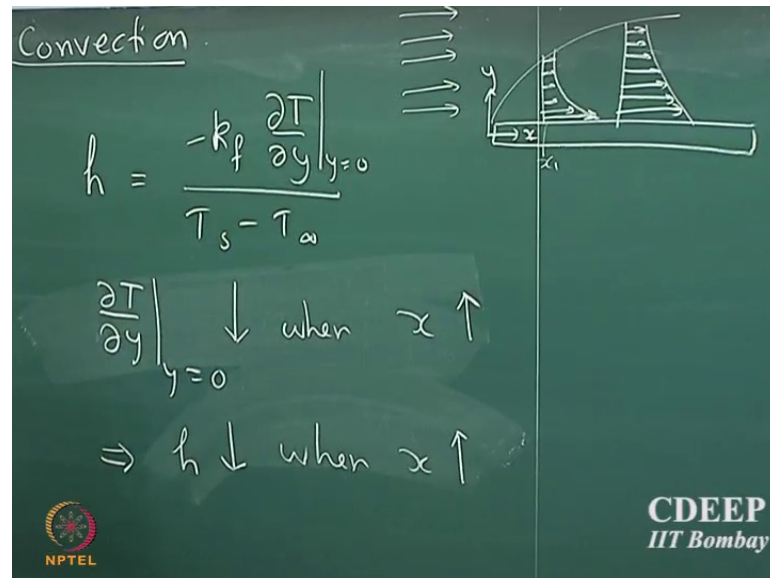 Convection
y
x
x₁
h = -k_f ∂T/∂y |_{y=0} / T_s - T_∞
∂T/∂y |_{y=0} ↓ when x ↑
⇒ h ↓ when x ↑
NPTEL
CDEEP
IIT Bombay